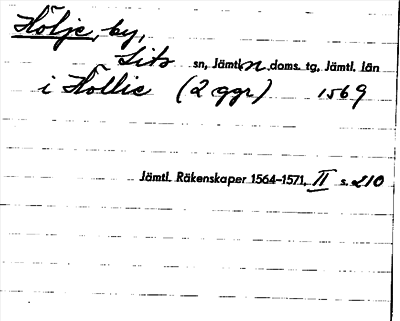 Hölje, by,
Lits sn, Jämtl. n. doms. tg, Jämtl. län
i Höllie (2 ggr) 1569
Jämtl. Räkenskaper 1564-1571, II s. 210